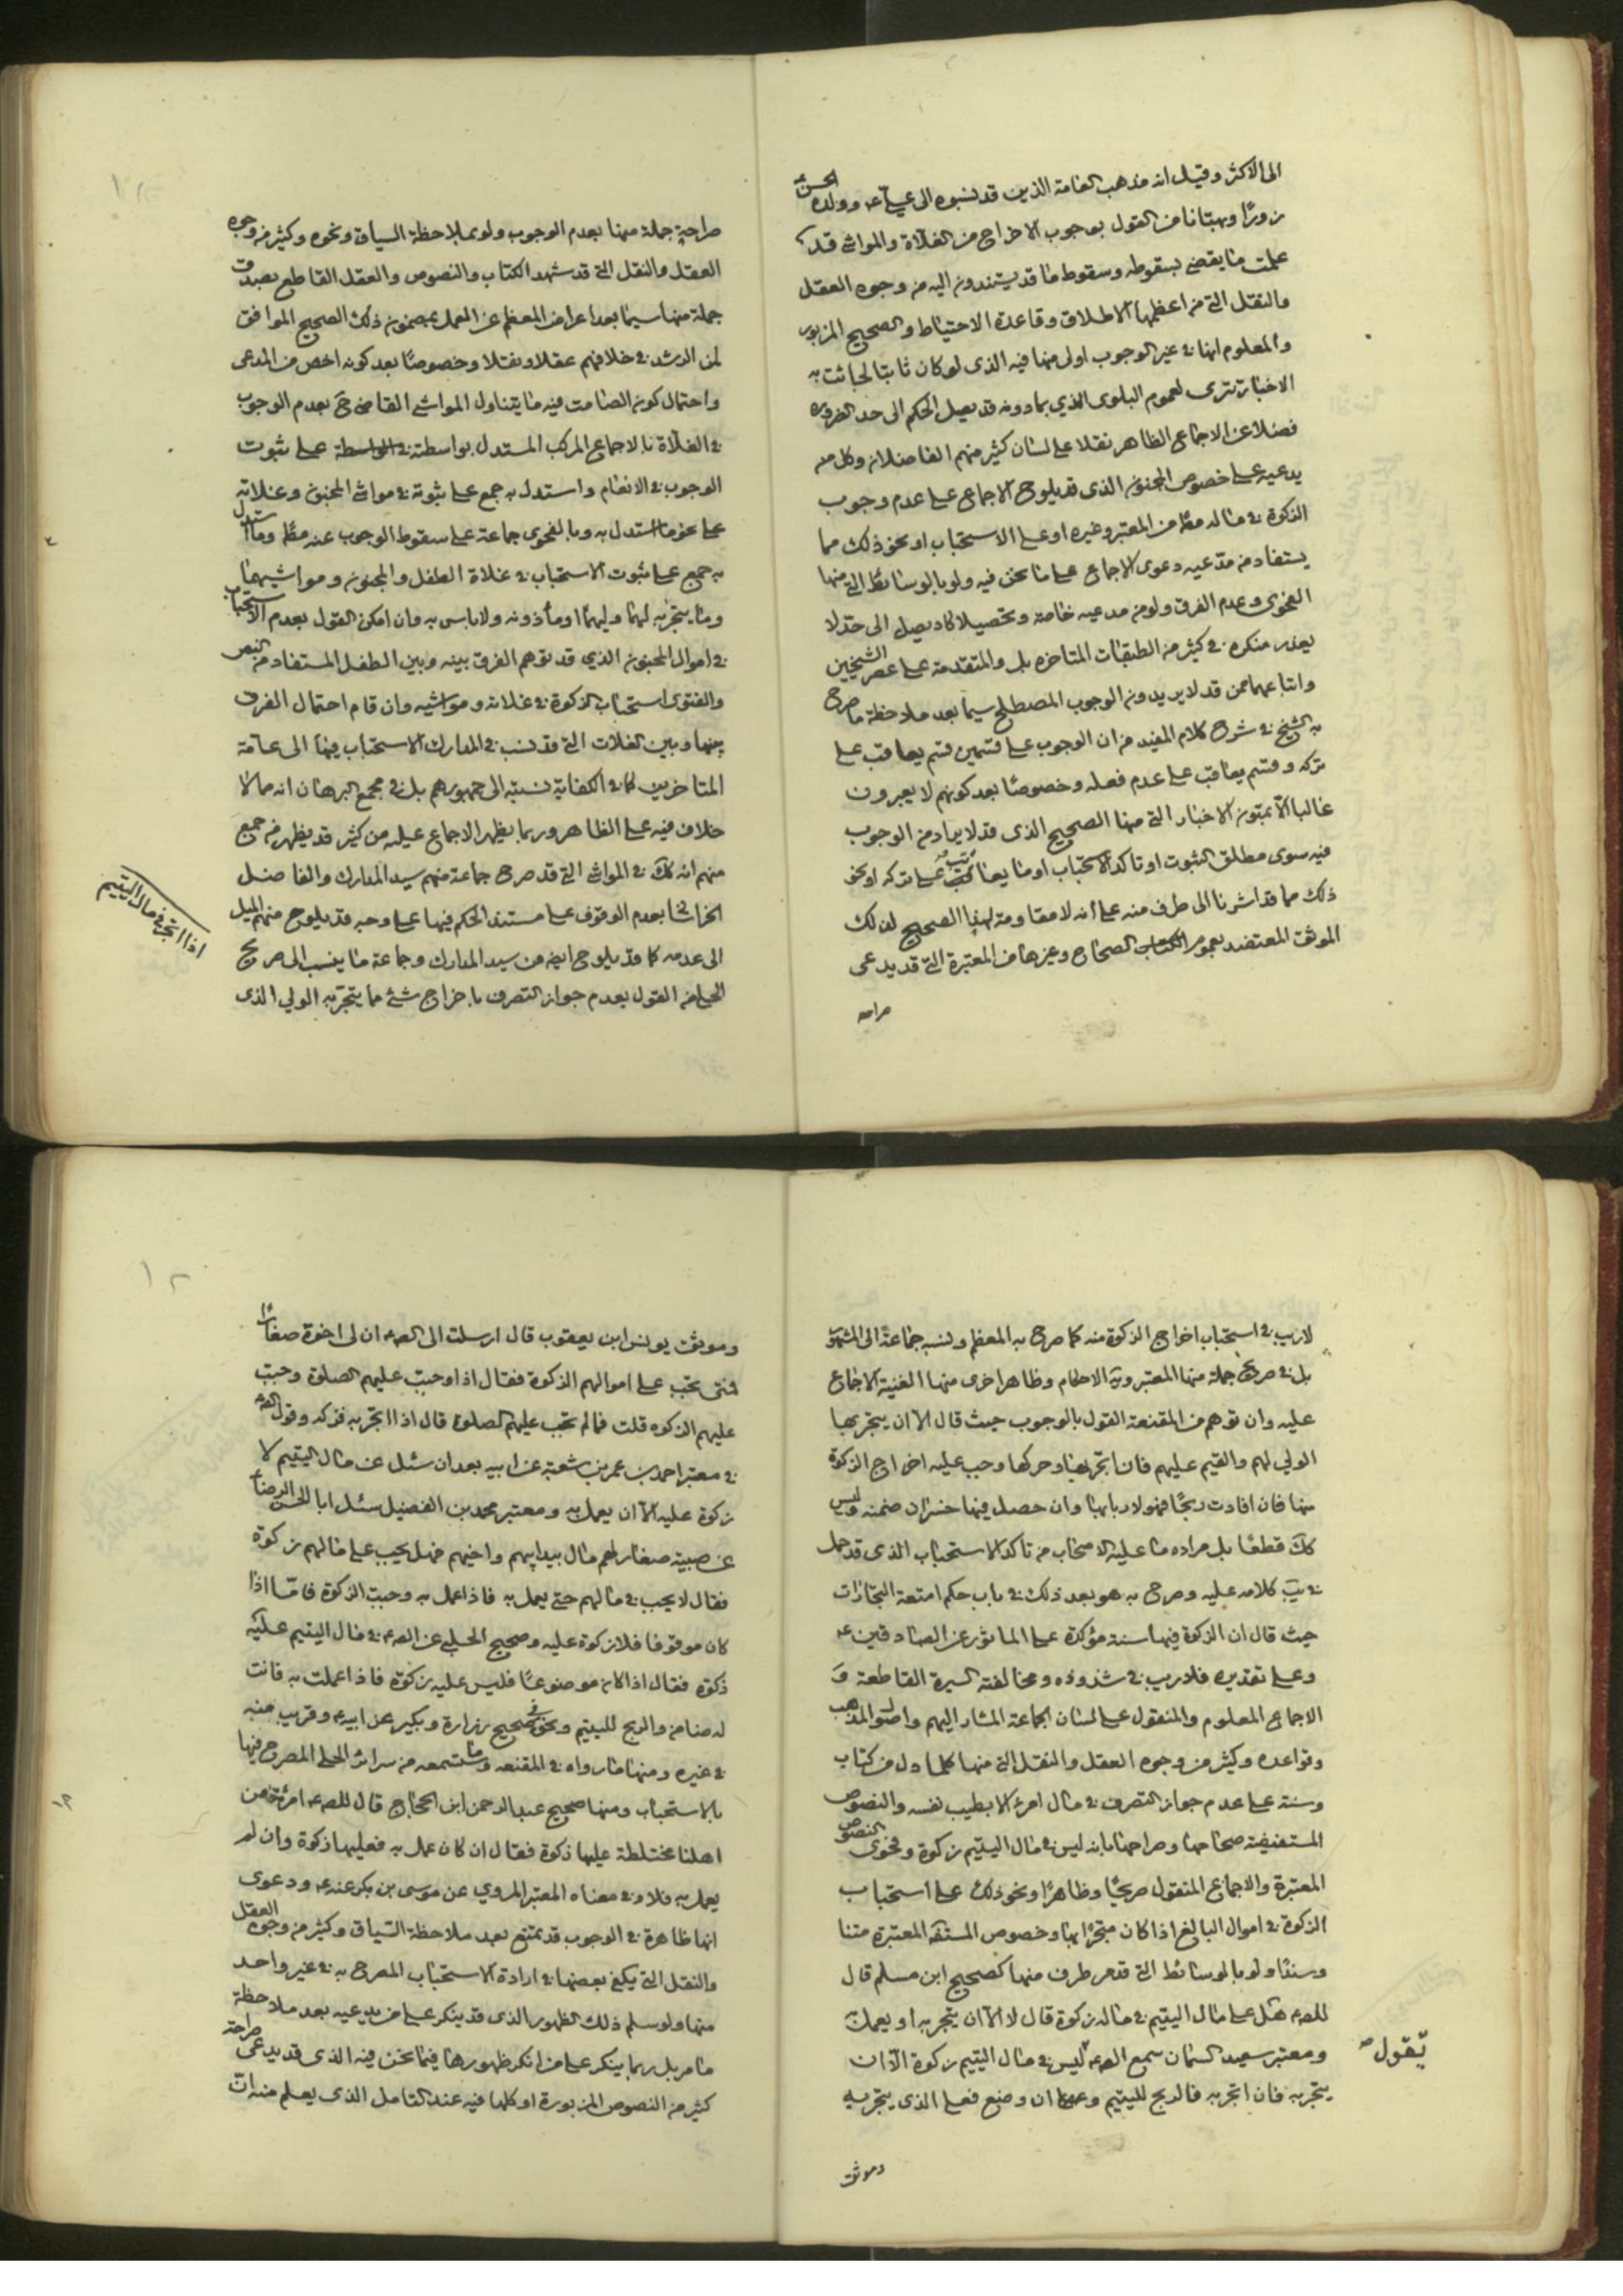 الى الاكثر وقيل انه مذهب العامة الذين قد نسبوه الى علي ع وولده الحسن ع
زورًا وبهتانا من القول بوجوب الاخراج من الغلاة والمواشي قد
علمت ما يقضي بسقوطه وسقوط ما قد يستندون اليه من وجوه العقل
والنقل التي من اعظمها الاطلاق وقاعدة الاحتياط والصحيح المزبور
والمعلوم انها في غير الوجوب اولى منها فيه الذي لو كان ثابتا لجائت به
الاخبار تترى لعموم البلوى الذي بما دونه قد يصل الحكم الى حد الضرورة
فضلا عن الاجماع الظاهر نقلا على لسان كثير منهم الفاضلان وكل من
يدعيه على خصوص المجنون الذي قد يلوح الاجماع على عدم وجوب
الزكوة في ماله مما من المعتبر وغيره او على الاستحباب او نحو ذلك مما
يستفاد من مدعيه دعوى الاجماع على ما نحن فيه ولو بالوسائط التي منها
الفحوى وعدم الفرق ولو من مدعيه خاصة وتحصيلا كاد يصل الى حد لا
يعذر منكره في كثير من الطبقات المتاخره بل والمتقدمة على عصر الشيخين
واتباعهما ممن قد لا يريدون الوجوب المصطلح سيما بعد ملاحظة ما صرح
به الشيخ في شرح كلام المفيد من ان الوجوب على قسمين قسم يعاقب على
تركه وقسم يعاقب على عدم فعله وخصوصًا بعد كونهم لا يعبرون
غالبا الا بمتون الاخبار التي منها الصحيح الذي قد لا يراد من الوجوب
فيه سوى مطلق الثبوت او تاكد الاستحباب او ما يعاتب على تركه او نحو
ذلك مما قد اشرنا الى طرف منه على انه لا مقاومة لهذا الصحيح لذلك
الموثق المعتضد بعموم الصحاح وغيرها من المعتبرة التي قد يدعى
صراحة
صراحة جملة منها بعدم الوجوب ولو بملاحظة السياق ونحوه وكثير من وجوه
العقل والنقل التي قد شهد الكتاب والنصوص والعقل القاطع بصدق
جملة منها سيما بعد اعراض المعظم عن العمل بمضمون ذلك الصحيح الموافق
لمن الرشد في خلافهم عقلا ونقلا وخصوصًا بعد كونه اخص من المدعى
واحتمال كون الصامت فيه ما يتناول المواشي القاضي ح بعدم الوجوب
في الغلاة بالاجماع المركب المستدل بواسطته على ثبوت
الوجوب في الانعام واستدل به جمع على ثبوته في مواشي المجنون وغلاته
على نحو ما استدل به وبالفحوى جماعة على سقوط الوجوب عنه مط وما استدل
به جمع على ثبوت الاستحباب في غلاة الطفل والمجنون ومواشيهما
وما يتجر به لهما وليهما او مأذونه ولا باس به وان امكن القول بعدم الاستحباب
في اموال المجنون الذي قد توهم الفرق بينه وبين الطفل المستفاد من النص
والفتوى استحباب الزكوة في غلاته ومواشيه وان قام احتمال الفرق
بينها وبين الغلات التي قد نسب في المدارك الاستحباب فيها الى عامة
المتاخرين كما في الكفاية نسبته الى جمهورهم بل في مجمع البرهان انه مما لا
خلاف فيه على الظاهر وربما يظهر الاجماع عليه من كثير قد يظهر من جميع
منهم انه كك في المواشي التي قد صرح جماعة منهم سيد المدارك والفاضل
الخراساني بعدم الوقوف على مستند الحكم فيها على وجه قد يلوح منهم الميل
الى عدمه كما قد يلوح ايضه من سيد المدارك وجماعة ما ينسب الى صريح
الحلي من القول بعدم جواز التصرف باخراج شئ مما يتجر به الولي الذي
اذا اتجر في مال اليتيم
لا ريب في استحباب اخراج الزكوة منه كما صرح به المعظم ونسبه جماعة الى المشهور
بل في صريح جملة منها المعتبر ونهاية الاحكام وظاهر اخرى منها الغنية الاجماع
عليه وان توهم من المقنعة القول بالوجوب حيث قال الا ان يتجر بها
الولي لهم والقيم عليهم فان اتجر بها وحركها وجب عليه اخراج الزكوة
منها فان افادت ربحًا فهو لاربابها وان حصل فيها خسران ضمنه وليس
كك قطعًا بل مراده ما عليه الاصحاب من تاكد الاستحباب الذي قد حمل
في يب كلامه عليه وصرح به هو بعد ذلك في باب حكم امتعة التجارات
حيث قال ان الزكوة فيها سنة مؤكدة على الماثور عن الصادقين ع
وعلى تقديره فلا ريب في شذوذه ومخالفته السيرة القاطعة و
الاجماع المعلوم والمنقول على لسان الجماعة المشار اليهم واصول المذهب
وقواعده وكثير من وجوه العقل والنقل التي منها كلما دل من كتاب
وسنة على عدم جواز التصرف في مال امرء الا بطيب نفسه والنصوص
المستفيضة صحاحها وصراحها بانه ليس في مال اليتيم زكوة وفحوى النصوص
المعتبرة والاجماع المنقول صريحًا وظاهرًا ونحو ذلك على استحباب
الزكوة في اموال البالغ اذا كان متجرًا بها وخصوص المستفيضة المعتبرة متنا
وسندًا ولو بالوسائط التي قد مر طرف منها كصحيح ابن مسلم قال
للصه ع هل على مال اليتيم في ماله زكوة قال لا الا ان يتجر به او يعمل
ومعتبر سعيد السمان سمع الصه ع ليس في مال اليتيم زكوة الا ان
يقول
يتجر به فان اتجر به فالربح لليتيم وان وضع فعلى الذي يتجر به
وموثق
وموثق يونس ابن يعقوب قال ارسلت الى الصه ع ان لي اخوة صغارًا
فمتى تجب على اموالهم الزكوة فقال اذا وجبت عليهم الصلوة وجبت
عليهم الزكوه قلت فما لم تجب عليهم الصلوة قال اذا اتجر به فزكه وقول الصه ع
في معتبر احمد بن عمر بن شعبة عن ابيه بعد ان سئل عن مال اليتيم لا
زكوة عليه الا ان يعمل به ومعتبر محمد بن الفضيل سئل ابا الحسن الرضا ع
عن صبية صغار لهم مال بيد ابيهم واخيهم فهل يجب على مالهم زكوة
فقال لا يجب في مالهم حتى يعمل به فاذا عمل به وجبت الزكوة فامّا اذا
كان موقوفا فلا زكوة عليه وصحيح الحلبي عن الصه ع في مال اليتيم عليه
زكوة فقال اذا كان موضوعًا فليس عليه زكوة فاذا عملت به فانت
له ضامن والربح لليتيم ونحوه صحيح زرارة وبكير عن ابيه ع وقريب منه
في غيره ومنها ما رواه في المقنعه وما ستسمعه من سرائر الحلي المصرح فيها
بالاستحباب ومنها صحيح عبد الرحمن ابن الحجاج قال للصه ع امرئة من
اهلنا مختلطة عليها زكوة فقال ان كان عمل به فعليها زكوة وان لم
يعمل به فلا وفي معناه المعتبر المروي عن موسى بن بكر عنه ع ودعوى
انها ظاهرة في الوجوب قد تمتنع بعد ملاحظة السياق وكثير من وجوه العقل
والنقل التي يكفي بعضها في ارادة الاستحباب المصرح به في غير واحد
منها ولو سلم ذلك الظهور الذي قد ينكر على من يدعيه بعد ملاحظة
ما مر بل ربما ينكر على من انكر ظهورها فيما نحن فيه الذي قد يدعى صراحة
كثير من النصوص المزبورة او كلها فيه عند التامل الذي يعلم منه ان